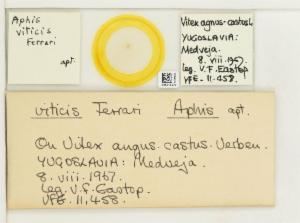 Aphis
viticis
Ferrari
apt.
Vitex agnus-castus L.
YUGOSLAVIA:
Medveja.
8. viii. 1957.
leg. V. F. Eastop
VFE. 11,458.
viticis Ferrari Aphis apt.
On Vitex angus-castus. Verben.
YUGOSLAVIA: Medveja.
8. viii. 1957.
leg. V. F. Eastop.
VFE. 11,458.